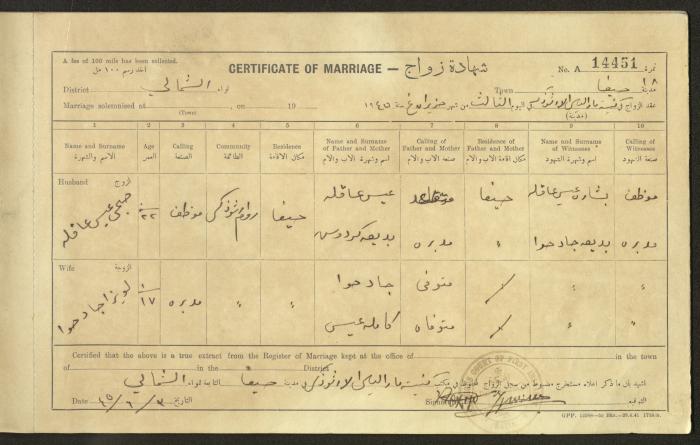 A fee of 100 mils has been collected.
اخذ رسم ١٠٠ مل
CERTIFICATE OF MARRIAGE — شهادة زواج
No. A 14451 نمرة
District لواء الشمالي
Town حيفا مدينة
Marriage solemnised at , on 19
(Town)
عقد الزواج في كنيسة مار الياس الارثوذكسي اليوم الثالث من شهر حزيران سنة ١٩٤٥
(مدينة)
1 2 3 4 5 6 7 8 9 10
Name and Surname Age Calling Community Residence Name and Surname of Father and Mother Calling of Father and Mother Residence of Father and Mother Name and Surname of Witnesses Calling of Witnesses
الاسم والشهرة العمر الصنعة الطائفة مكان الاقامة اسم وشهرة الاب والام صنعة الاب والام مكان اقامة الاب والام اسم وشهرة الشهود صنعة الشهود
Husband الزوج
صبحي عيسى عاقله ٢٢ موظف روم ارثوذكس حيفا عيسى عاقله حيفا بشاره عيسى عاقله موظف
بديعه كردوس مدبره " بديعه جاد حوا مدبره
Wife الزوجة
لويزا جاد حوا ١٧ مدبره " " جاد حوا متوفى " "
كامله عيسى متوفاه " "
Certified that the above is a true extract from the Register of Marriage kept at the office of in the town
of in the District
اشهد بان ما ذكر اعلاه مستخرج مضبوط من سجل الزواج المحفوظ في مكتب كنيسة مار الياس الارثوذكسي في مدينة حيفا التابعة للواء الشمالي
Date ٣/٦/٤٥ التاريخ
التوقيع